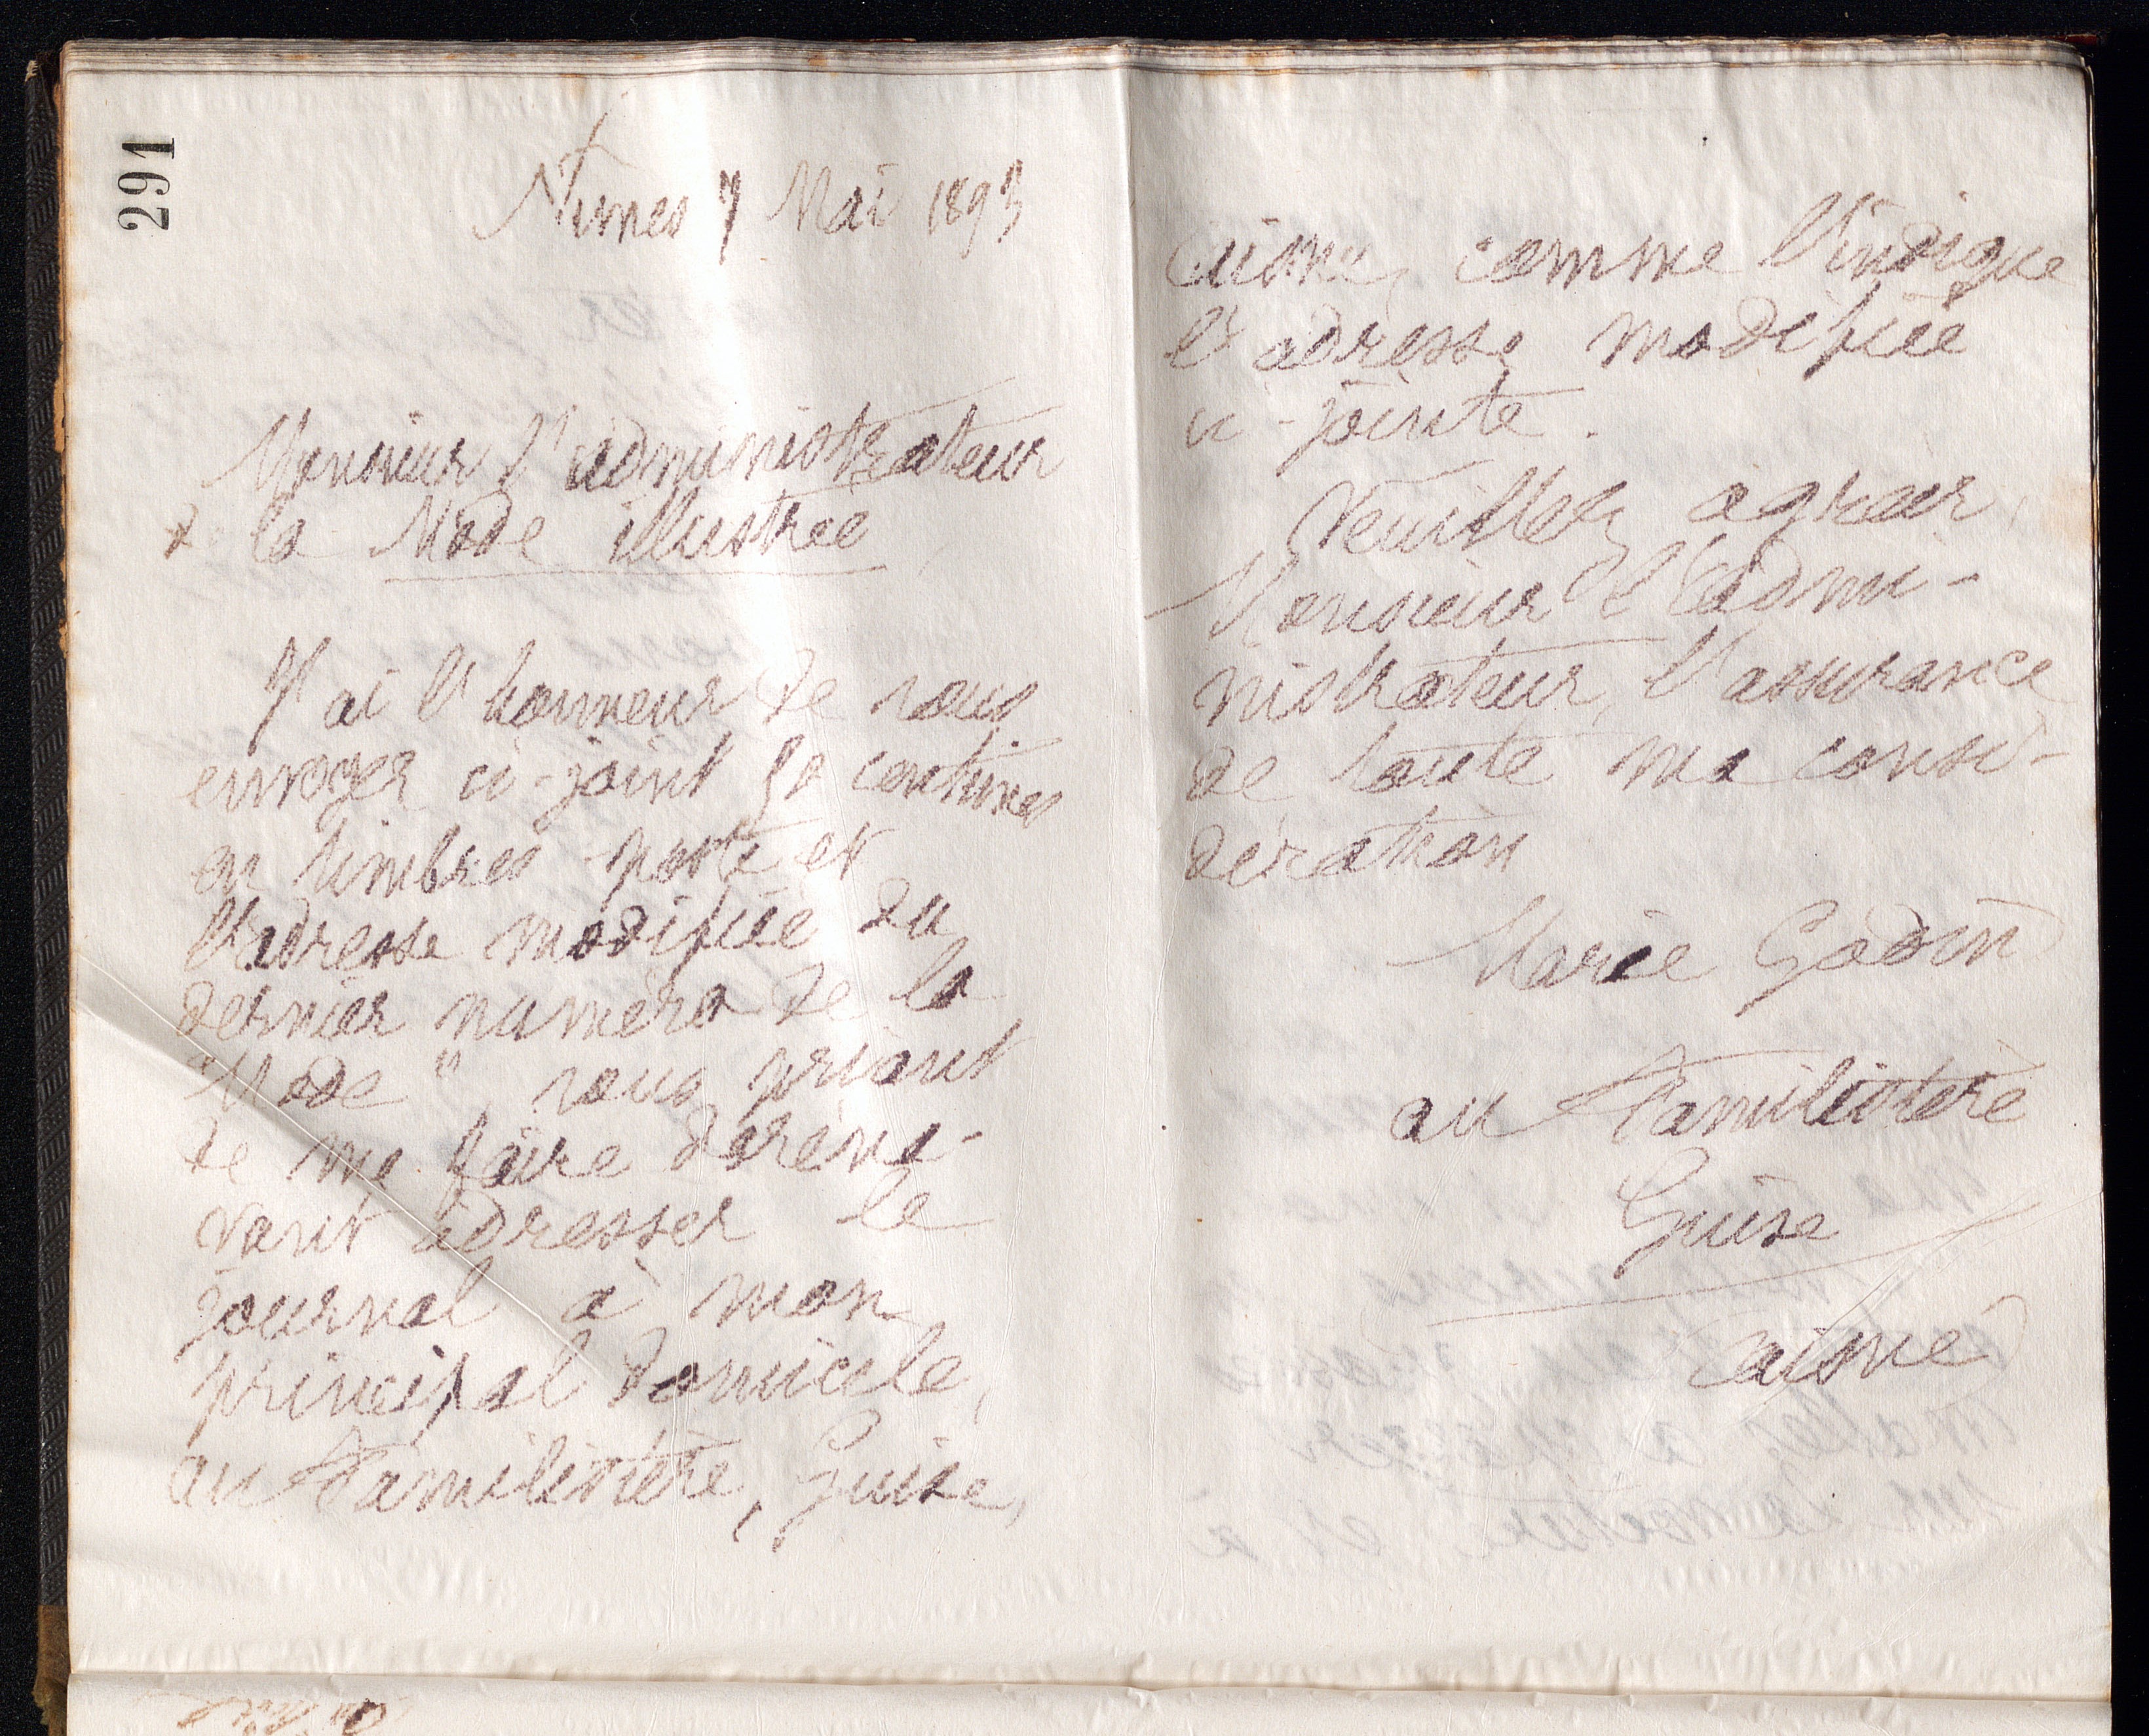 291
Nîmes 7 Mai 1893
Monsieur l'administrateur
de la Mode illustrée
J'ai l'honneur de vous
envoyer ci-joint 50 centimes
en timbres-poste et
l'adresse modifiée du
dernier numéro de la
"Mode", vous priant
de me faire doréna-
vant adresser le
journal à mon
principal domicile,
au Familistère, Guise,
Aisne, comme l'indique
l'adresse modifiée
ci-jointe.
Veuillez agréer,
Monsieur l'admi-
nistrateur, l'assurance
de toute ma consi-
dération
Marie Godin
au Familistère
Guise
Aisne